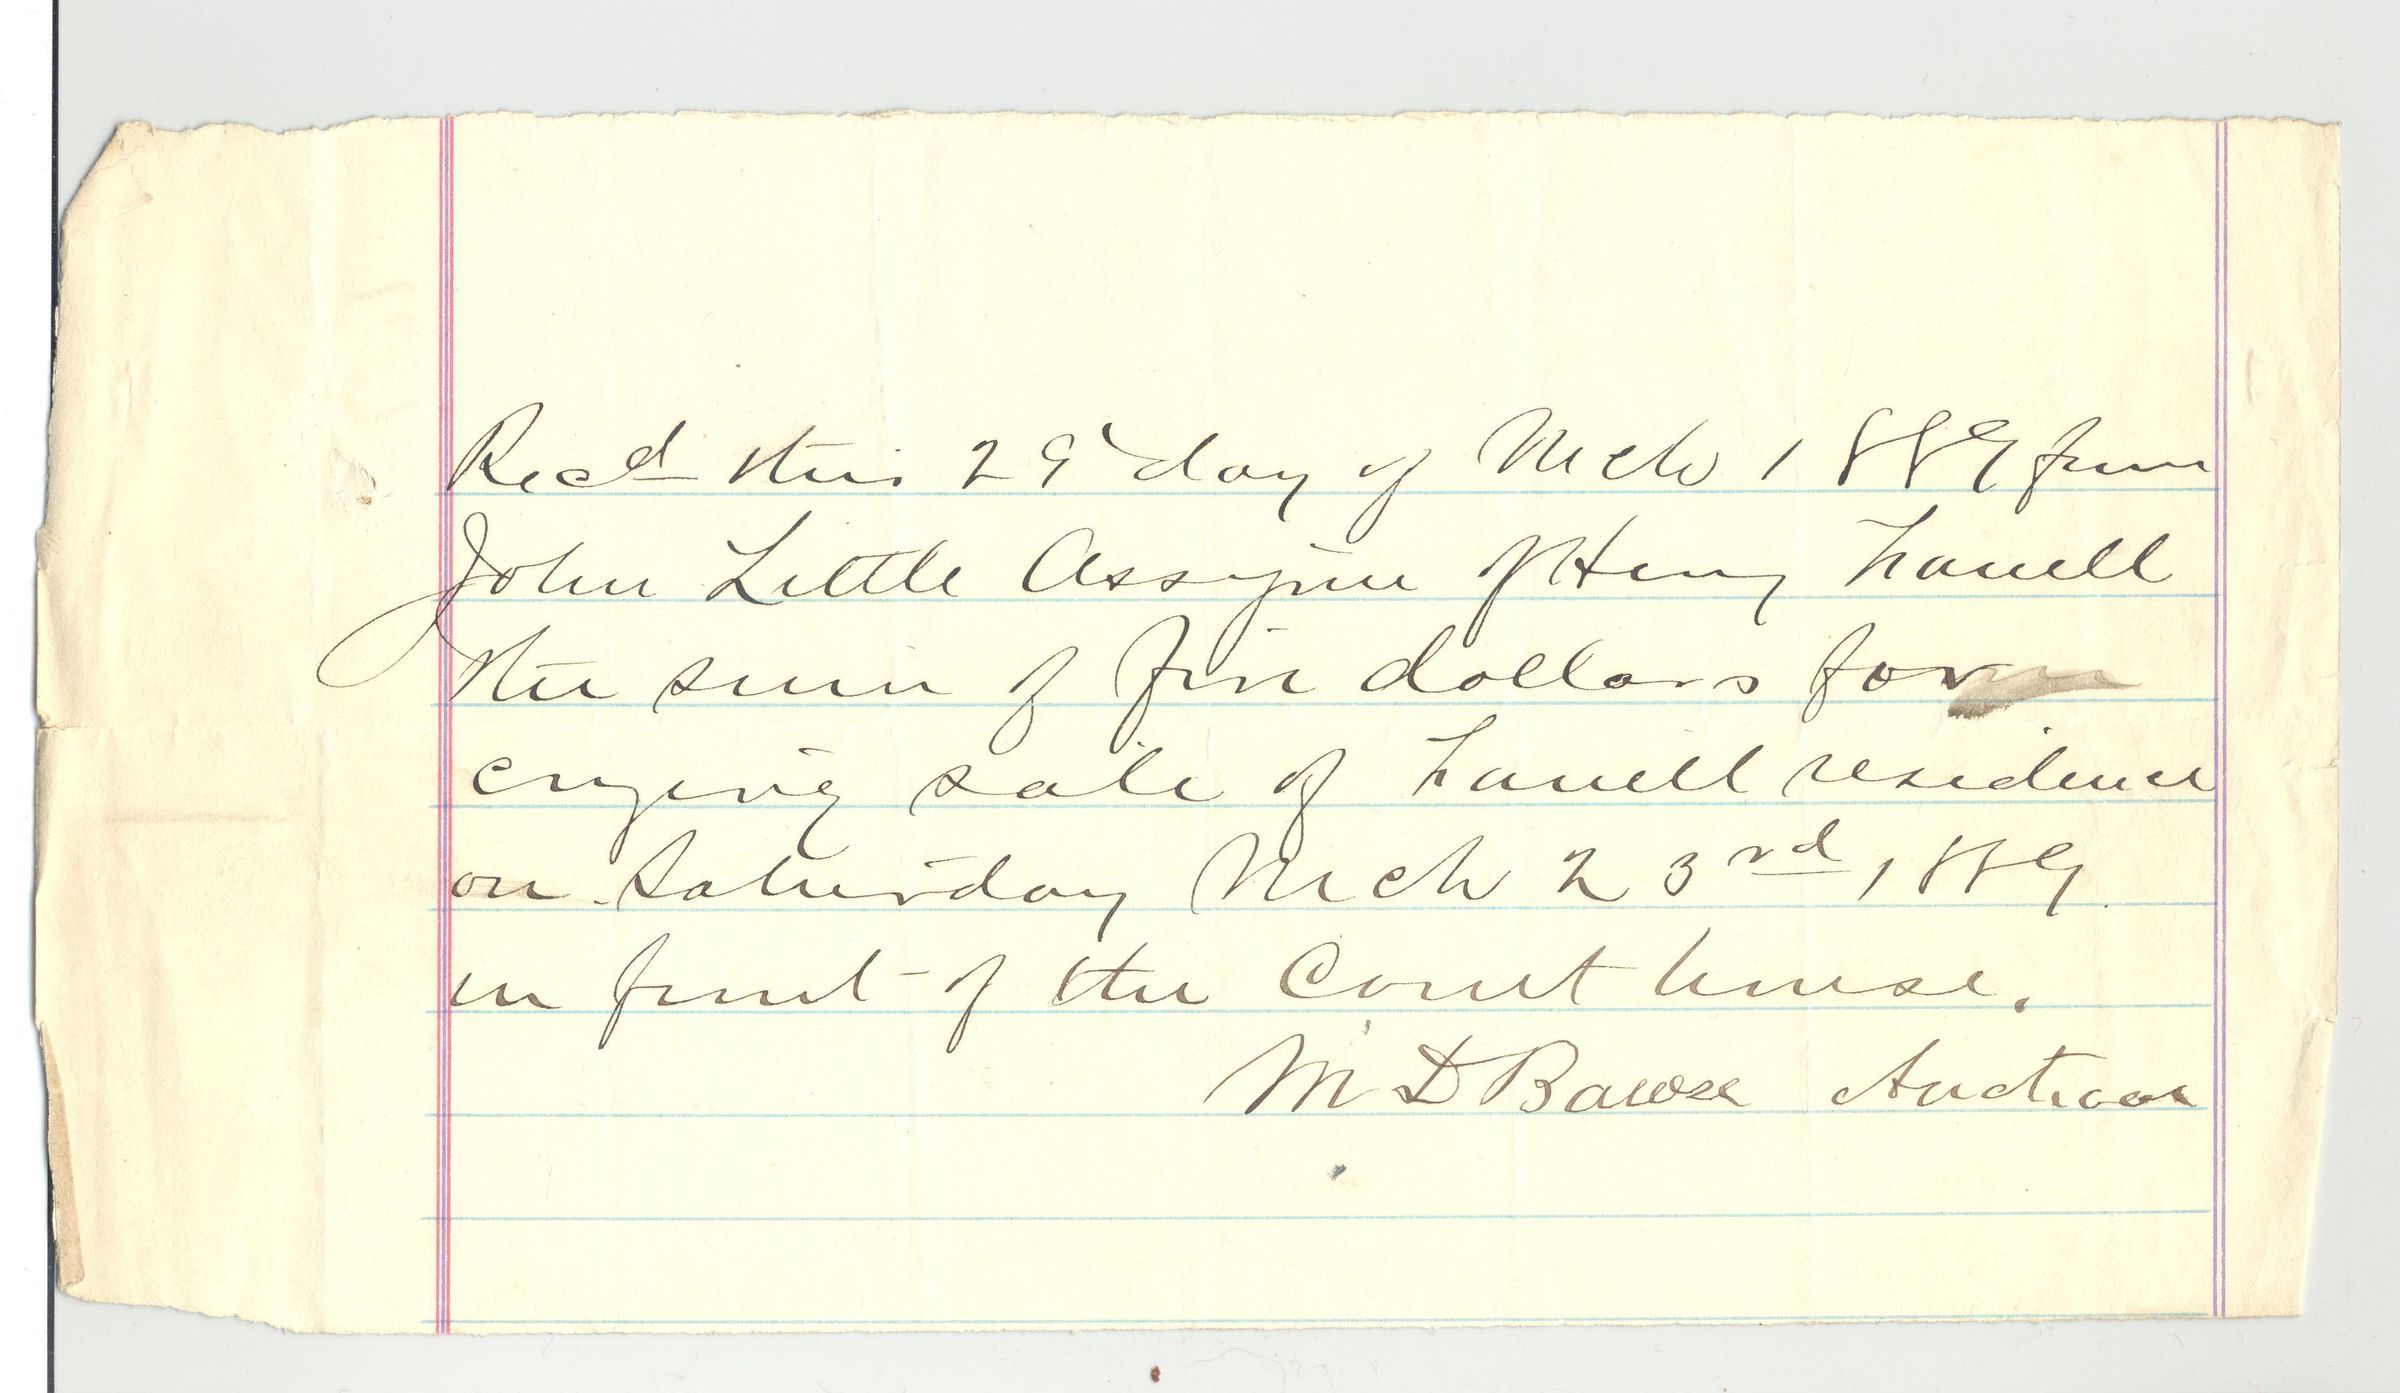 Recd this 29 day of Mch 1889 from
John Little Assignee of Henry Farrell
the sum of five dollars for
crying sale of Farrell residence
on Saturday Mch 23rd, 1889.
in front of the Court house.
M D Bawse Auctioneer